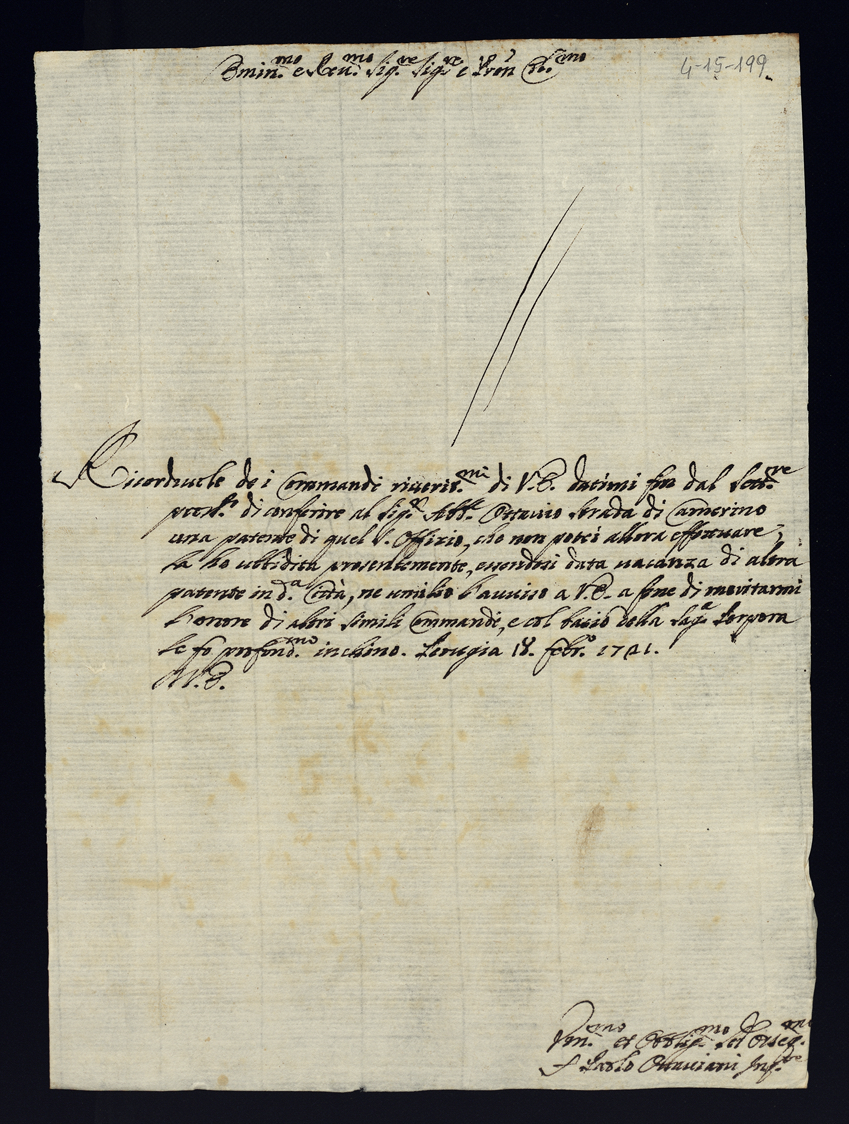 Emin.mo e Reu.mo Sig.re Sig.re e Pron Col.mo
4-15-199
Ricordeuole de i Commandi riueritis.mi di V.E. datimi fin dal Sett.re
di conferire al Sig.r Abb.e Ottauio Strada di Camerino
una patente di quel S. Offizio, che non potei allora effettuare,
la ho ubbidita presentemente, essendosi data uacanza di altra
patente in d.a Città, ne umilio l'auuiso a V.E. a fine di meritarmi
l'onore di altri simili Commandi, e col bacio della Sag.a Porpora
le fo profond.mo inchino. Perugia 18. febr.o 1721.
V.E.
Um.mo et Obblig.mo Ser Osseq.mo
F. Paolo Ottauiani Inq.re